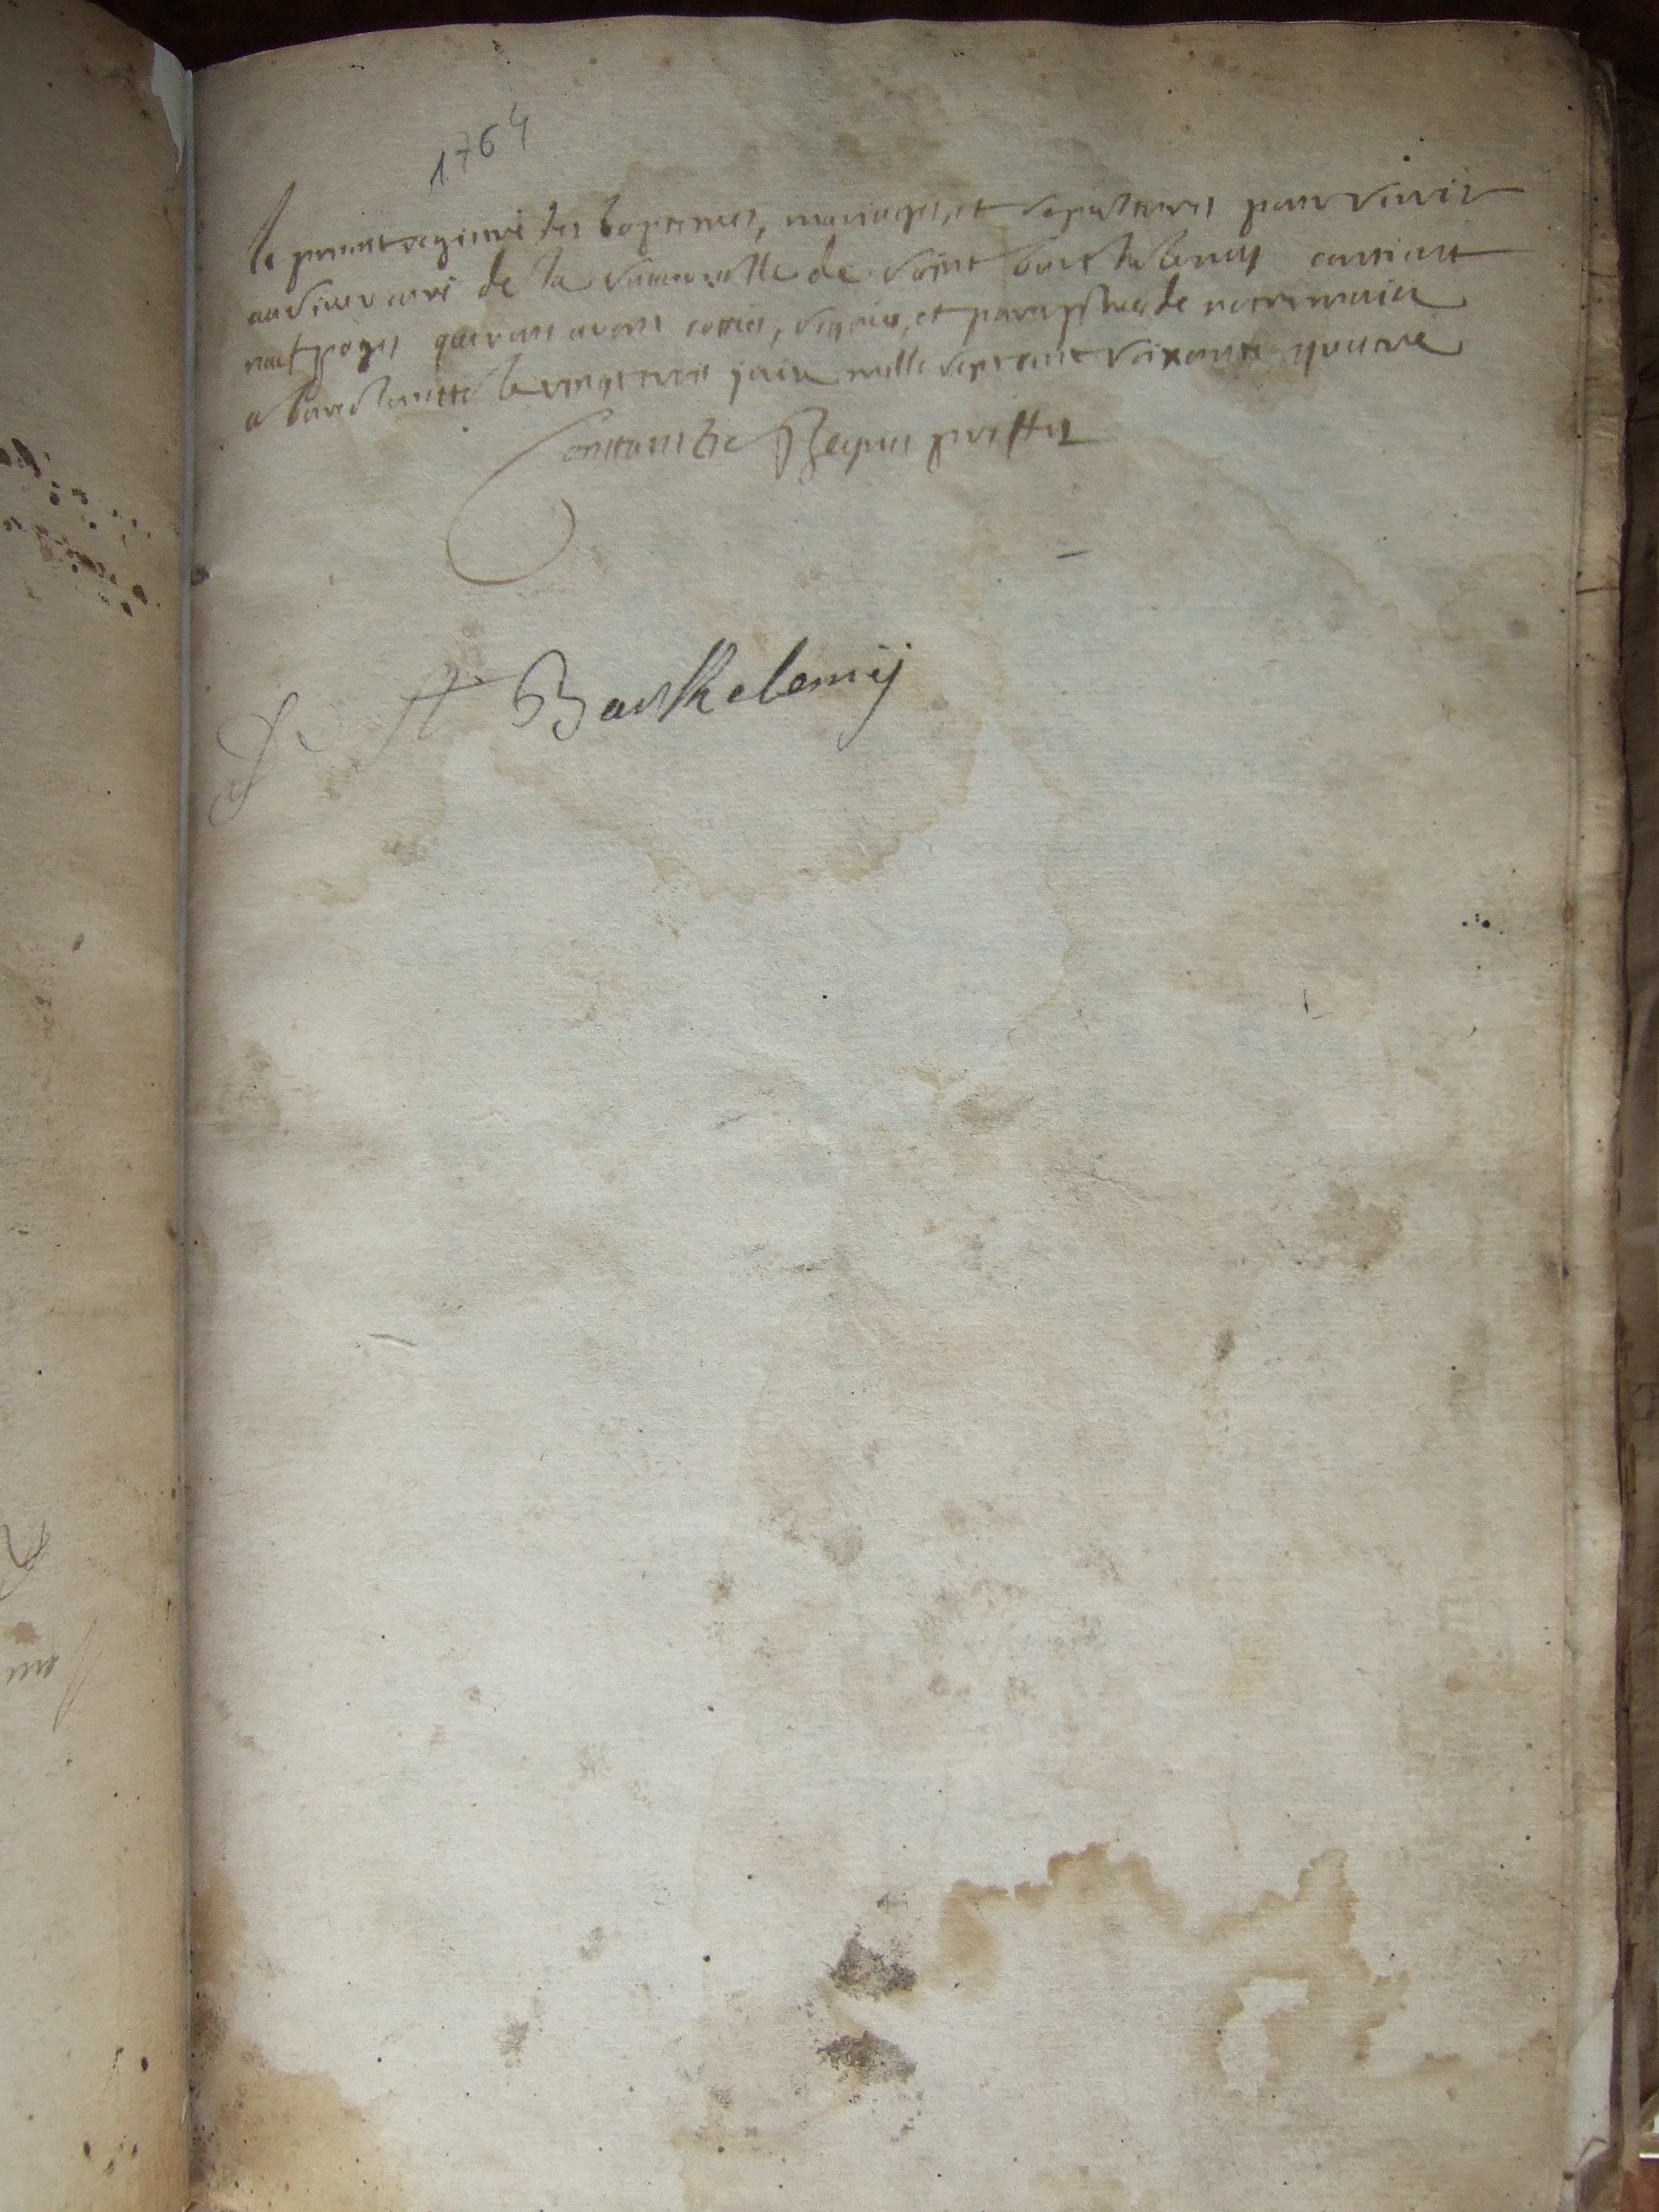 1764
le present registre des baptemes, mariages, et sepultures pour servir
au vicaire de la succursalle de saint barthelemy contient
neuf pages que nous avons cottés, signées, et paraphées de notre main
a barcelonnette le vingt trois juin mille sept cent soixante quatre
De St Barthelemy